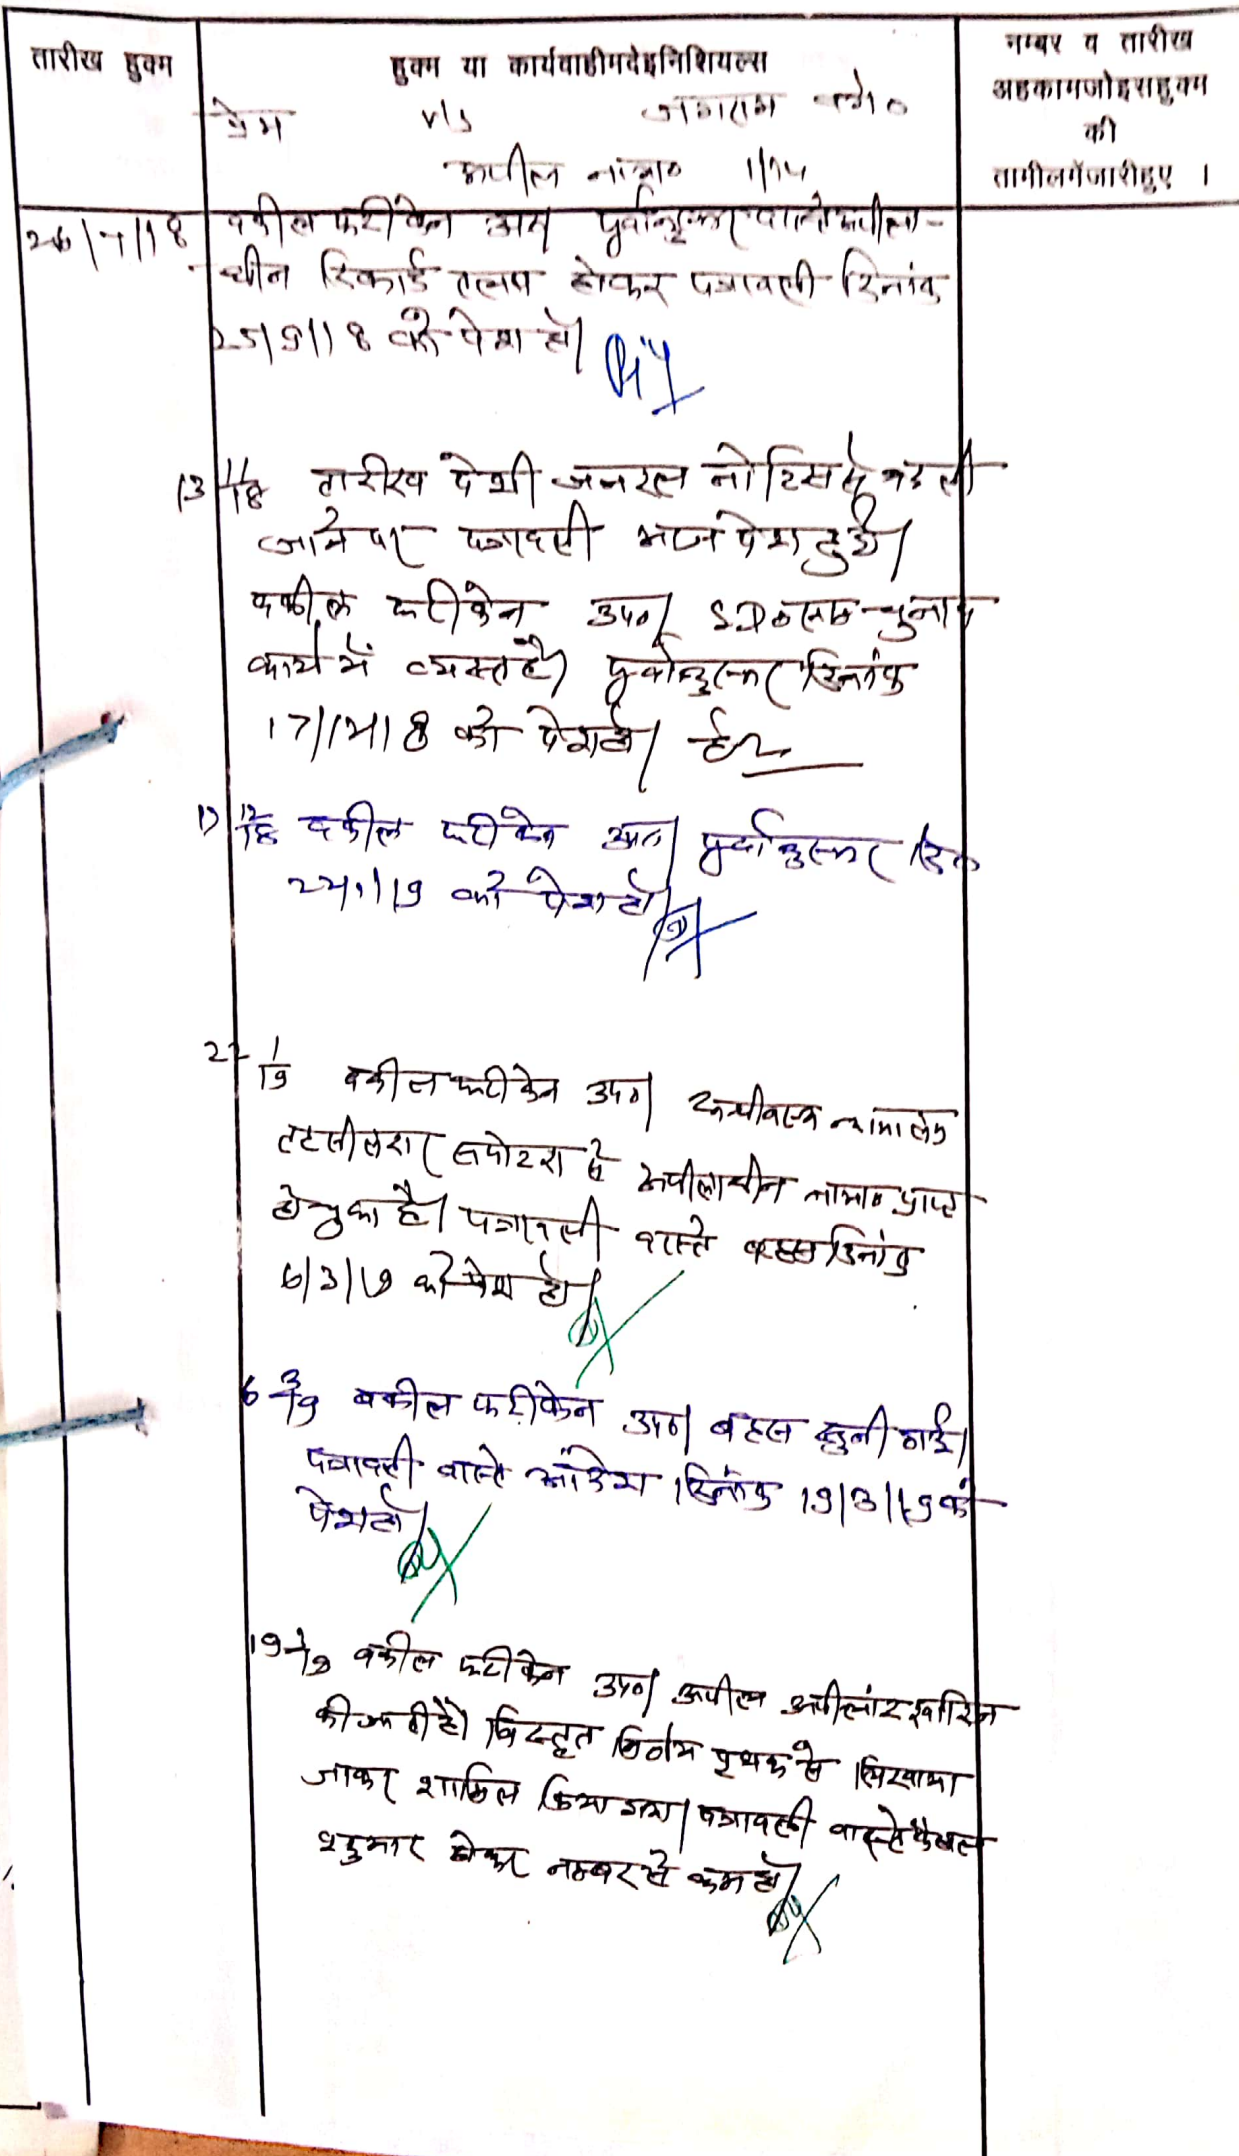 तारीख हुक्म
हुक्म या कार्यवाहीमयेइनिशियल्स
नम्बर व तारीख
अहकामजोइसहुक्म
की
तामीलमेंजारीहुए ।
प्रेम v/s जगराम वगै०
अपील नां०मा० 1/14
26/7/18 वकील फरीकेन उप० पूर्वानुसार वास्ते अपीला-
धीन रिकार्ड तलब होकर पत्रावली दिनांक
25/9/18 को पेश हो।
13 11/18 तारीख पेशी जनरल नोटिस से बदली
जाने पर पत्रावली आज पेश हुई।
वकील फरीकेन उप० चुनाव
कार्य में व्यस्त है। पूर्वानुसार दिनांक
17/12/18 को पेश हो।
17 12/18 वकील फरीकेन उप० पूर्वानुसार दि०
22/1/19 को पेश हो।
22 1/19 वकील फरीकेन उप० न्यायालय
तहसीलदार सपोटरा से अपीलाधीन ना०मा० प्राप्त
हो चुका है। पत्रावली वास्ते बहस दिनांक
6/3/19 को पेश हो।
6 3/19 वकील फरीकेन उप० बहस सुनी गई।
पत्रावली वास्ते आदेश दिनांक 19/3/19 को
पेश हो।
19 3/19 वकील फरीकेन उप० अपील अपीलांट खारिज
की जाती है। विस्तृत निर्णय पृथक से लिखाया
जाकर शामिल किया गया। पत्रावली वास्ते फैसल
शुमार होकर नम्बर से कम हो।